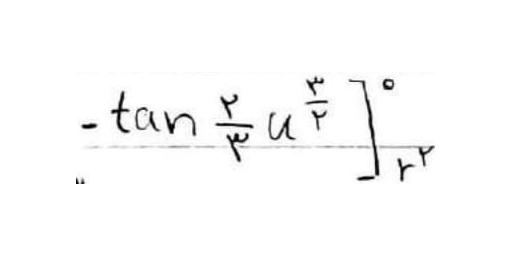 -tan ۲/۳ u^۳/۲ ]_r^۲ ^۰